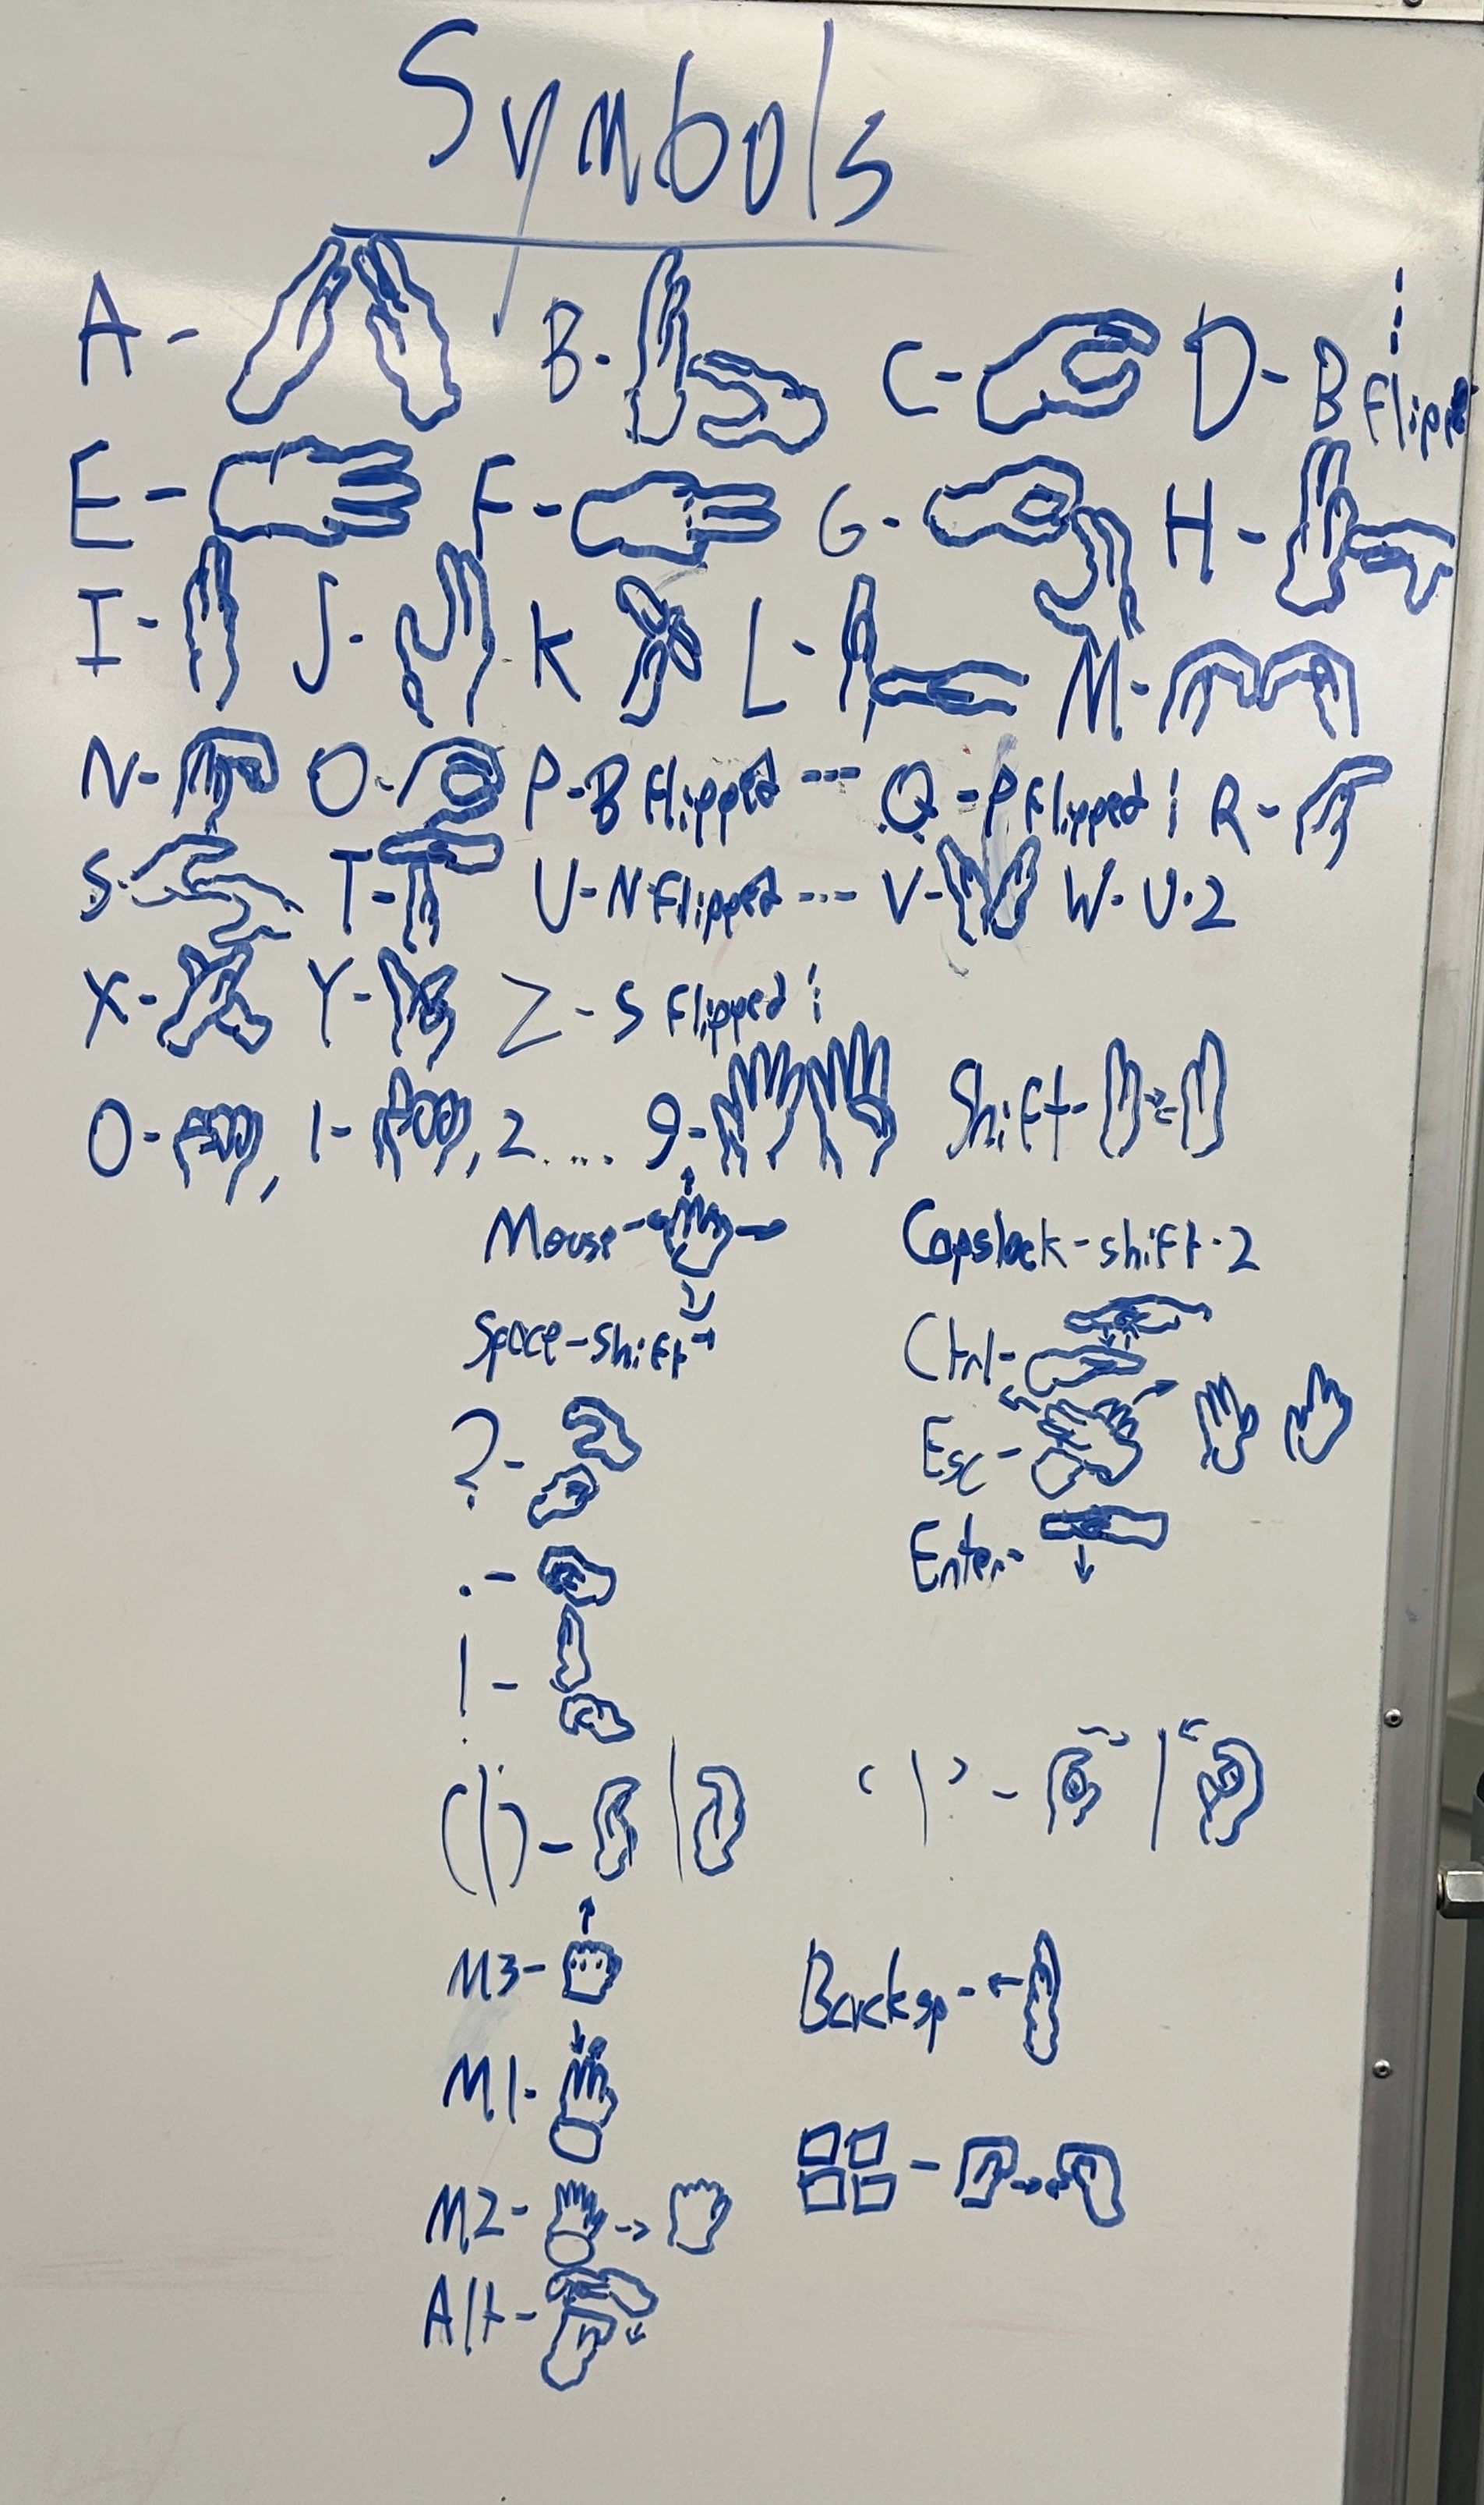 Symbols
A - B - C - D - B flipped
E - F - G - H -
I - J - K L - M -
N - O - P - B flipped --- Q - P flipped R -
S - T - U - N flipped --- V - W - U · 2
X - Y - Z - S flipped
0 - , 1 - , 2 .... 9 - Shift -
Mouse - Capslock - shift · 2
Space - shift Ctrl -
? - Esc -
. - Enter -
! -
( | ) - ‘ | ’ -
M3 - Backsp -
M1 -
M2 -
Alt -